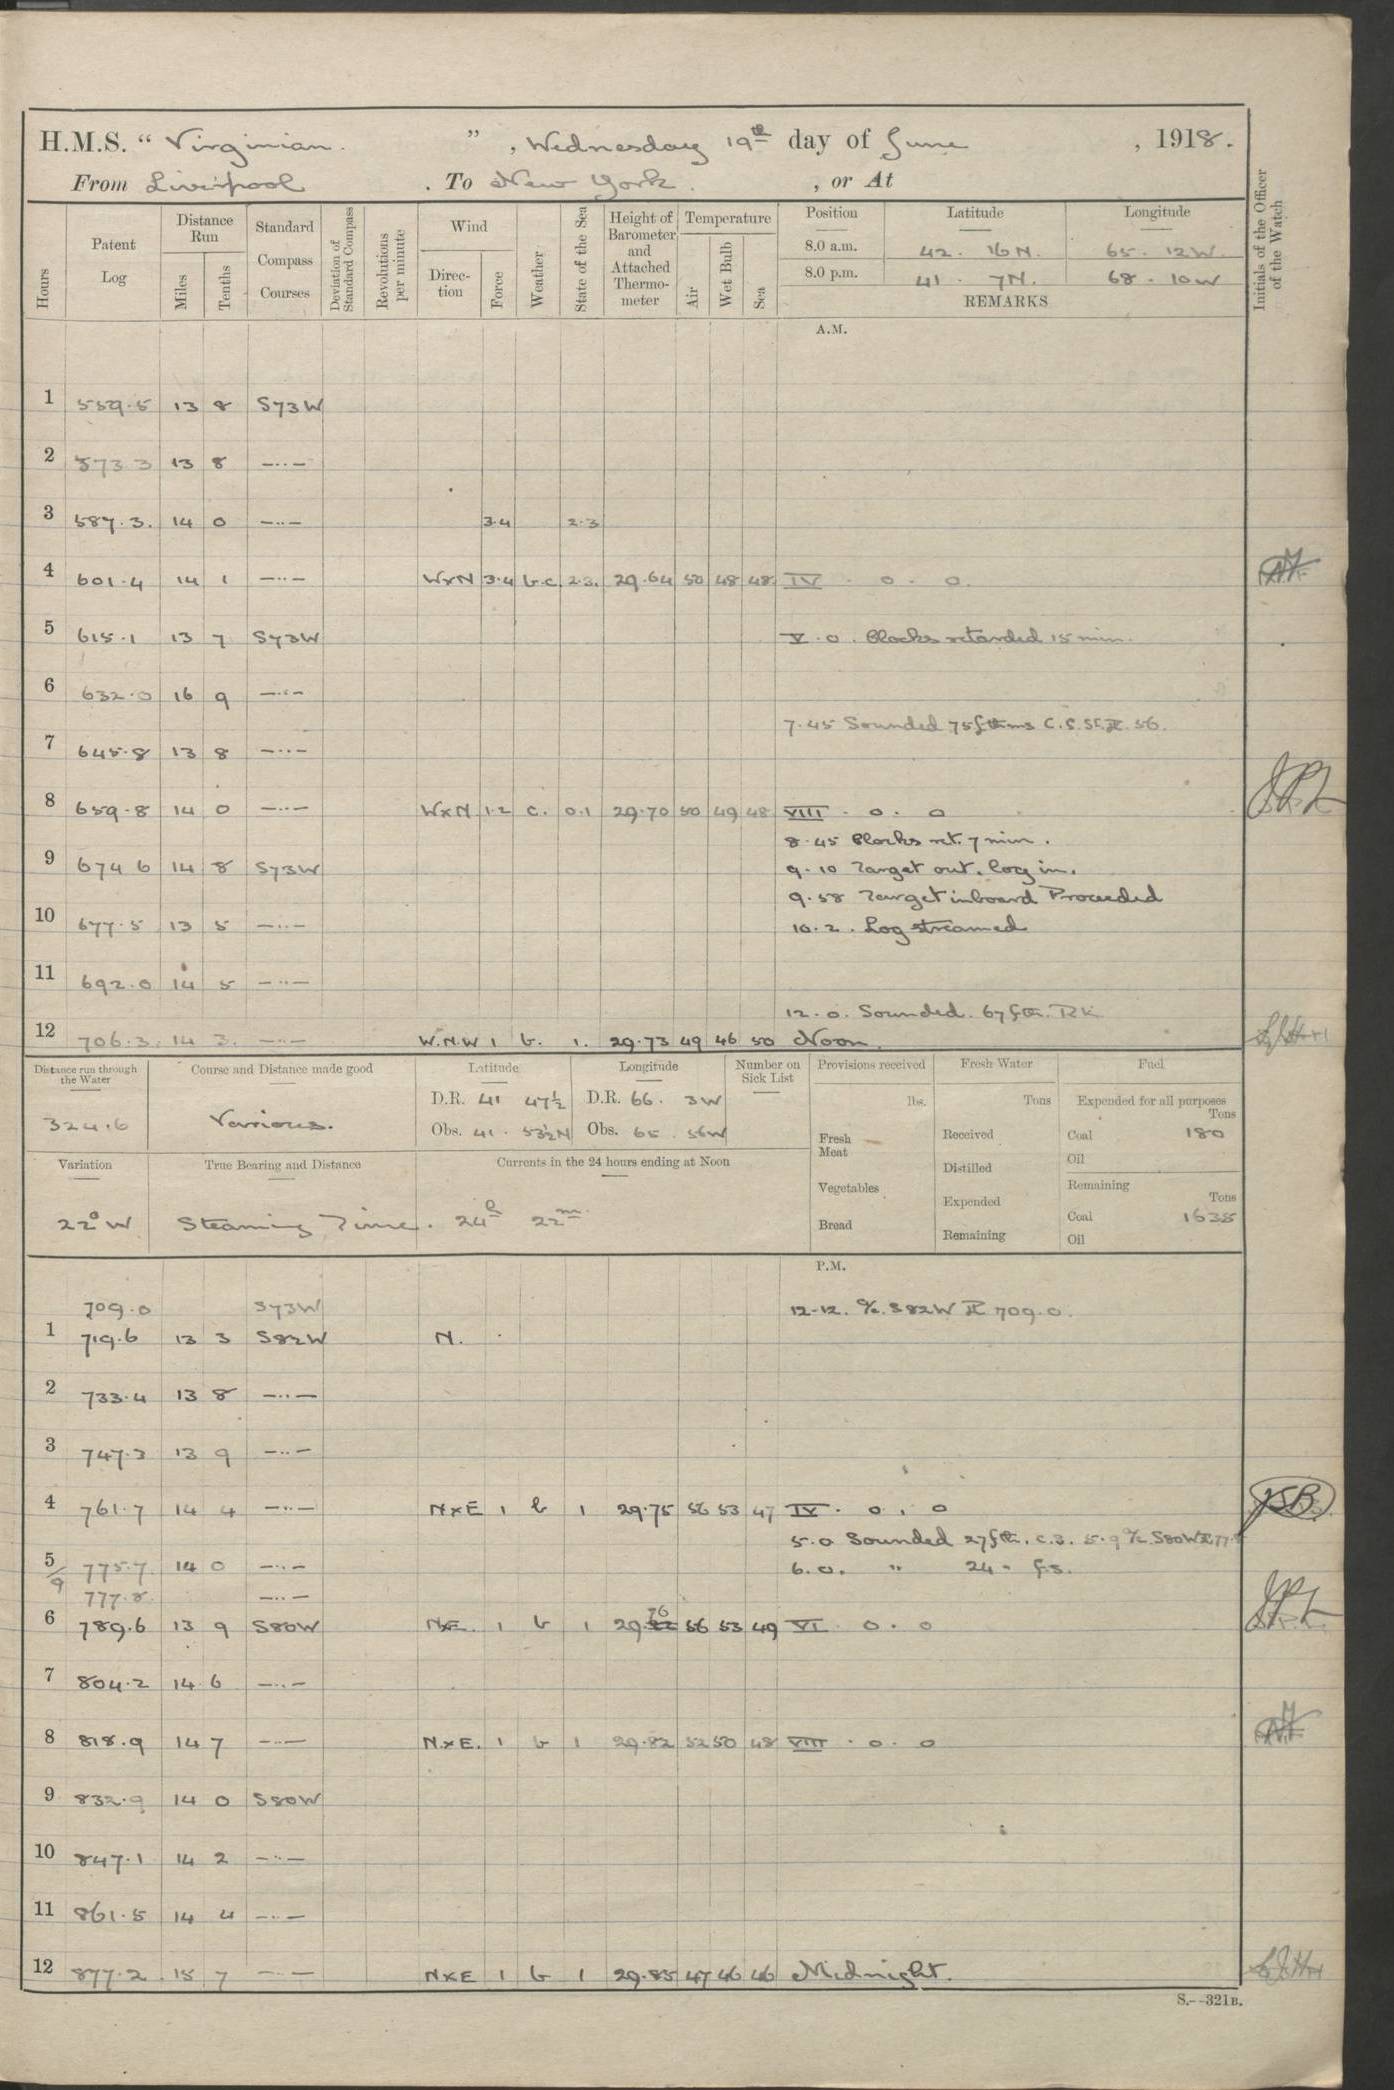 H.M.S. “ Virginian. ”, Wednesday 19th day of June, 1918.
From Liverpool. To New York., or At
Hours Patent Log Distance Run Miles Tenths Standard Compass Courses Deviation of Standard Compass Revolutions per minute Wind Direction Force Weather State of the Sea Height of Barometer and Attached Thermometer Temperature Air Wet Bulb Sea Position Latitude Longitude Initials of the Officer of the Watch
8.0 a.m. 42. 16 N. 65. 12 W.
8.0 p.m. 41. 7 N. 68. 10 W
REMARKS
A.M.
1 559.5 13 8 S73W
2 573 3 13 8 —··—
3 587.3. 14 0 —··— 3.4 2.3
4 601.4 14 1 —··— WxN 3.4 b.c 2.3. 29.64 50 48 48 IV . 0 . 0.
5 615.1 13 7 S73W V.0. Clocks retarded 15 min.
6 632.0 16 9 —··—
7.45 Sounded 75 fthms
7 645.8 13 8 —··—
8 659.8 14 0 —··— WxN 1.2 c. 0.1 29.70 50 49 48 VIII . 0. 0
8.45 Clocks ret. 7 min.
9 674 6 14 8 S73W 9.10 Target out. Log in.
9.58 Target inboard Proceeded
10 677.5 13 5 —··— 10.2. Log streamed
11 692.0 14 5 —··—
12.0. Sounded. 67 fth.
12 706.3. 14 3. —··— W.N.W 1 b. 1. 29.73 49 46 50 Noon.
Distance run through the Water Course and Distance made good Latitude Longitude Number on Sick List Provisions received Fresh Water Fuel
324.6 Various. D.R. 41 47½ D.R. 66. 3 W lbs. Tons Expended for all purposes Tons
Obs. 41. 53½ N Obs. 65. 56 W Fresh Meat — Received Coal 180
Oil
Variation True Bearing and Distance Currents in the 24 hours ending at Noon Distilled
Vegetables Expended Remaining Tons
22° W Steaming Time. 24h 22m. Bread Remaining Coal 1638
Oil
P.M.
709.0 S73W 12-12. a/c. S82W PL 709.0.
1 719.6 13 3 S82W N.
2 733.4 13 8 —··—
3 747.3 13 9 —··—
4 761.7 14 4 —··— NxE 1 b 1 29.75 56 53 47 IV. 0. 0 JSB
5.0 Sounded 27 fth. c.s. 5.9 a/c S80W
5/9 775.7 14 0 —··— 6.0. " 24 " f.s.
777.8 —··—
6 789.6 13 9 S80W NxE. 1 b 1 29.76 56 53 49 VI 0. 0
7 804.2 14 6 —··—
8 818.9 14 7 —··— N.xE. 1 b 1 29.82 52 50 48 VIII . 0. 0
9 832.9 14 0 S80W
10 847.1 14 2 —··—
11 861.5 14 4 —··—
12 877.2 15 7 —··— NxE 1 b 1 29.85 47 46 46 Midnight.
S.—321B.